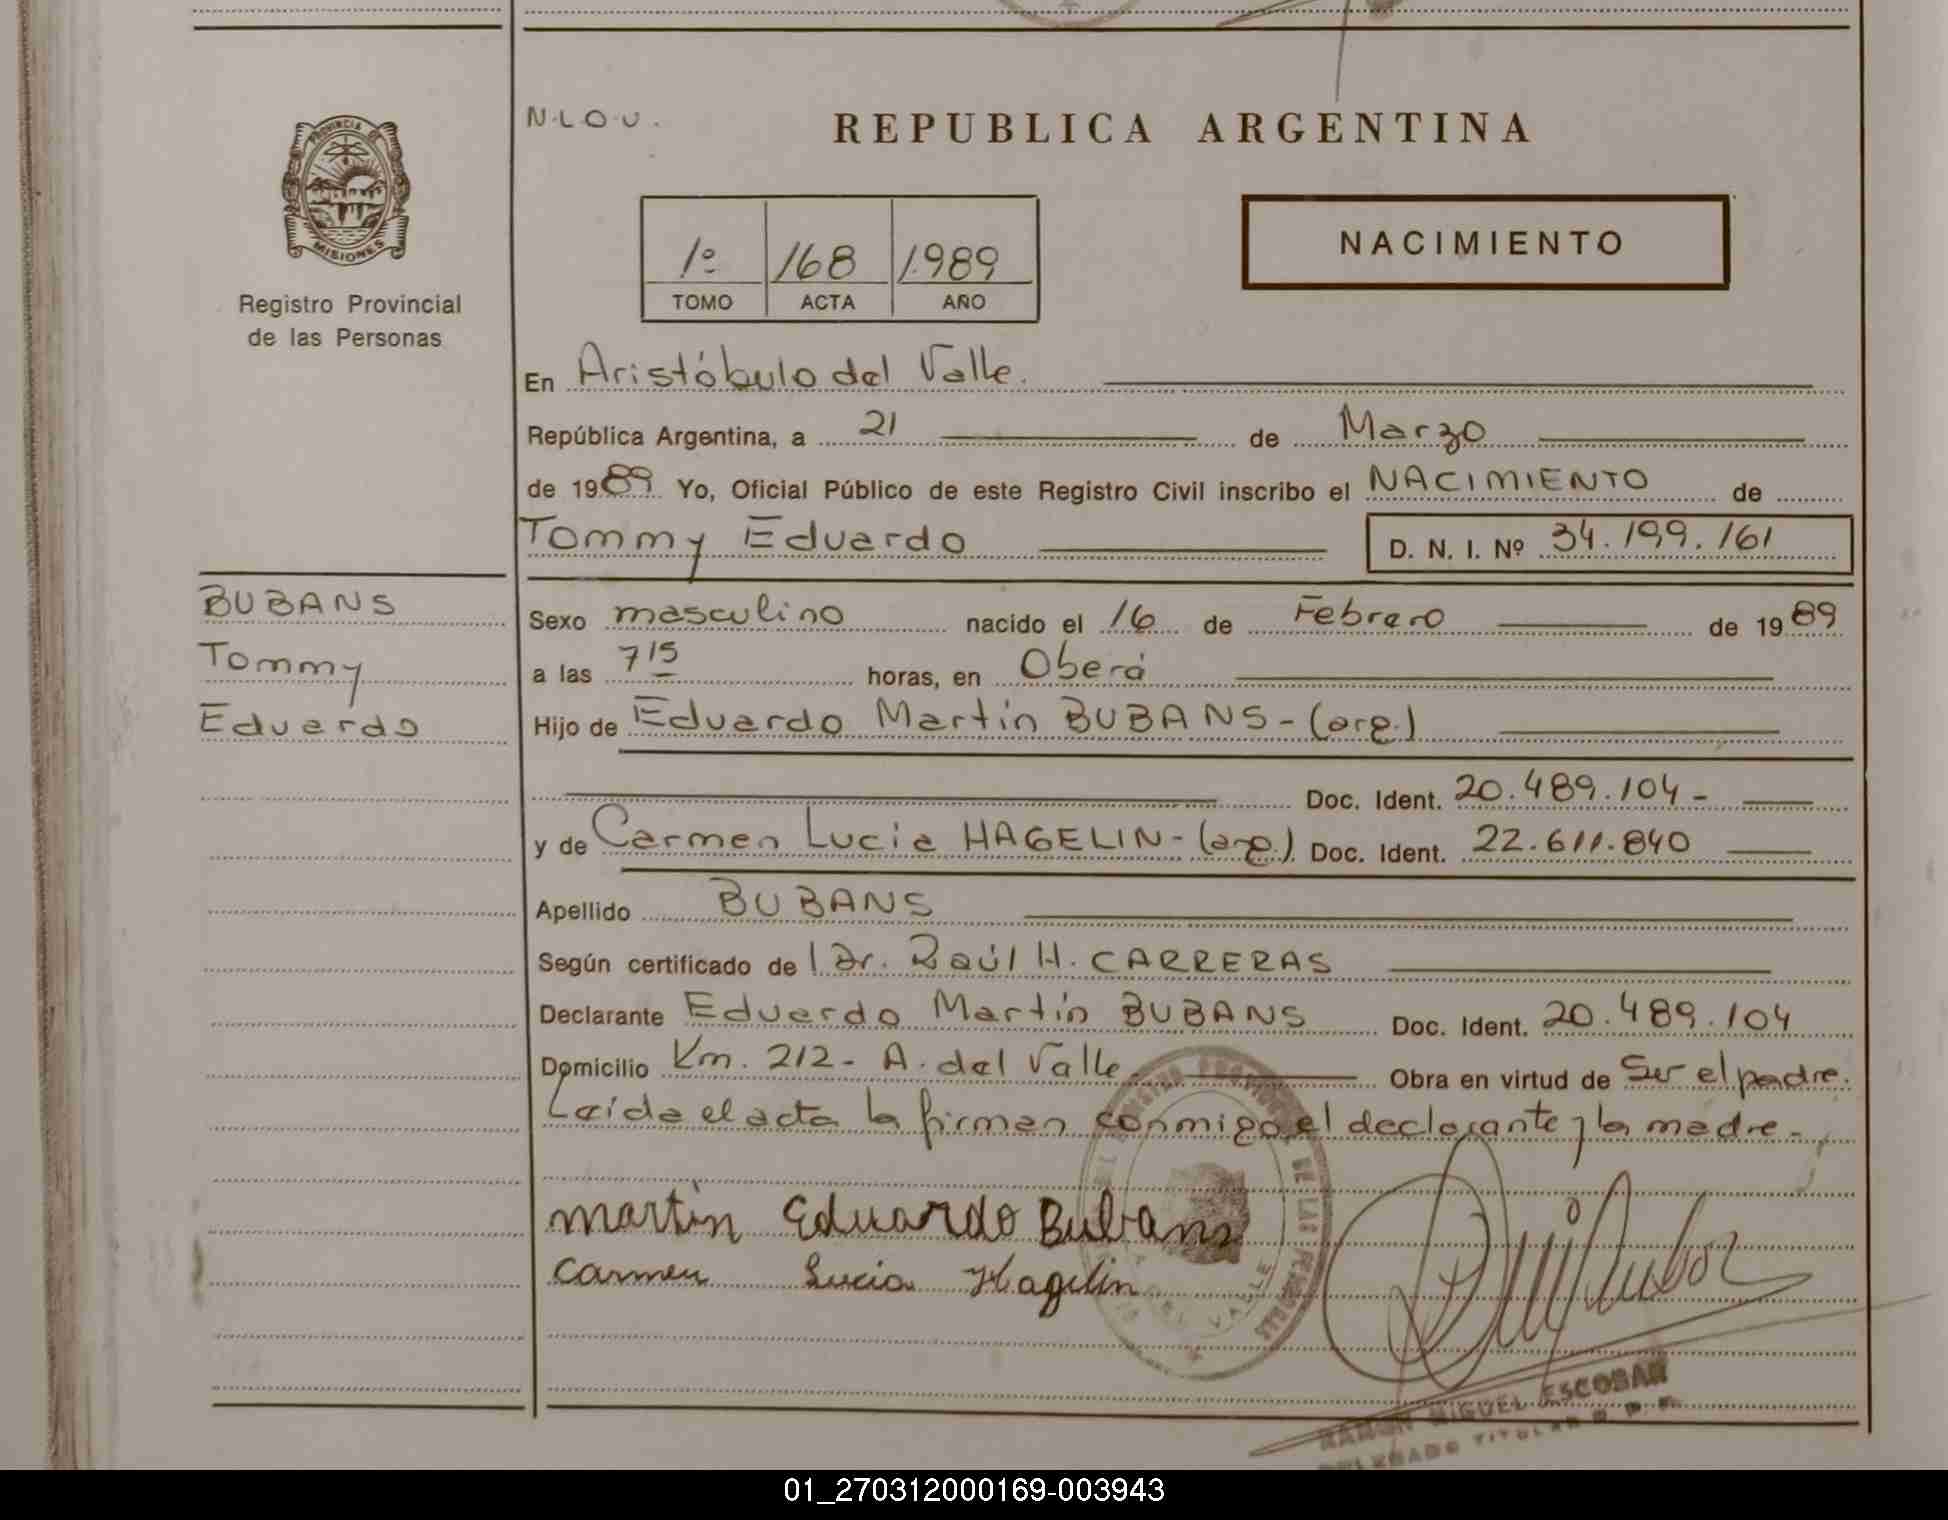 PROVINCIA DE
MISIONES
Registro Provincial
de las Personas
N.L.O.U.
REPUBLICA ARGENTINA
1º 168 1989
TOMO ACTA AÑO
NACIMIENTO
En Aristóbulo del Valle.
República Argentina, a 21 de Marzo
de 1989 Yo, Oficial Público de este Registro Civil inscribo el NACIMIENTO de
Tommy Eduardo D. N. I. Nº 34.199.161
BUBANS
Tommy
Eduardo
Sexo masculino nacido el 16 de Febrero de 1989
a las 7 15 horas, en Oberá
Hijo de Eduardo Martín BUBANS - (arg.)
Doc. Ident. 20.489.104 -
y de Carmen Lucia HAGELIN - (arg.) Doc. Ident. 22.611.840
Apellido BUBANS
Según certificado de l Dr. Raúl H. CARRERAS
Declarante Eduardo Martín BUBANS Doc. Ident. 20.489.104
Domicilio Km. 212 - A. del Valle Obra en virtud de Ser el padre.
Leída el acta la firman conmigo el declarante y la madre -
martín Eduardo Bubans
Carmen Lucia Hagelin
DE LAS PERSONAS
DEL VALLE
RAMON MIGUEL ESCOBAR
DELEGADO TITULAR R. P. P.
01_270312000169-003943